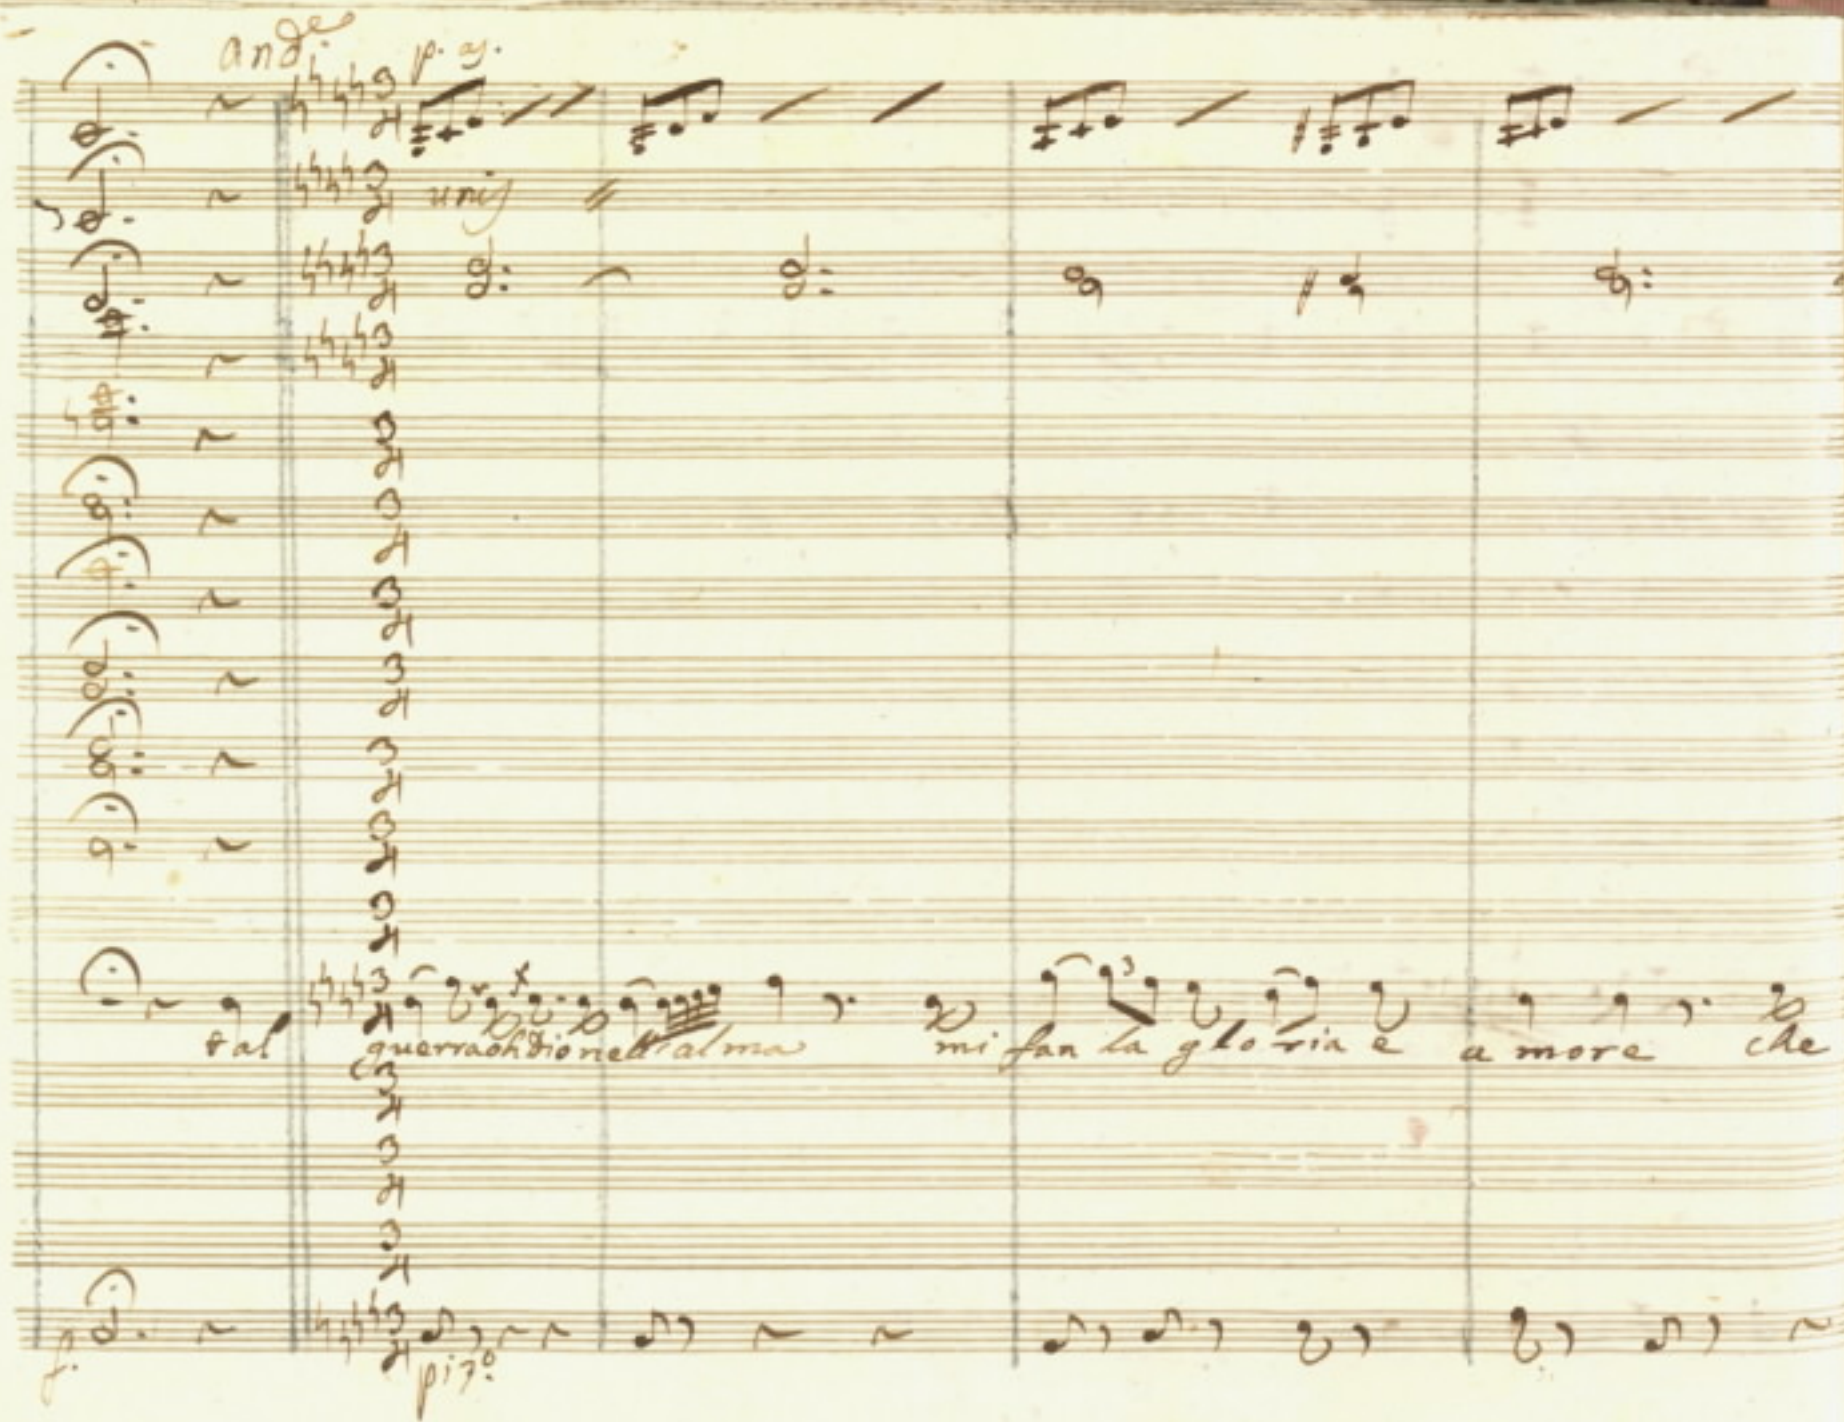 and.e
p. as.
unis
tal guerra oh dio nell'alma mi fan la gloria e amore che
f.
pizo.